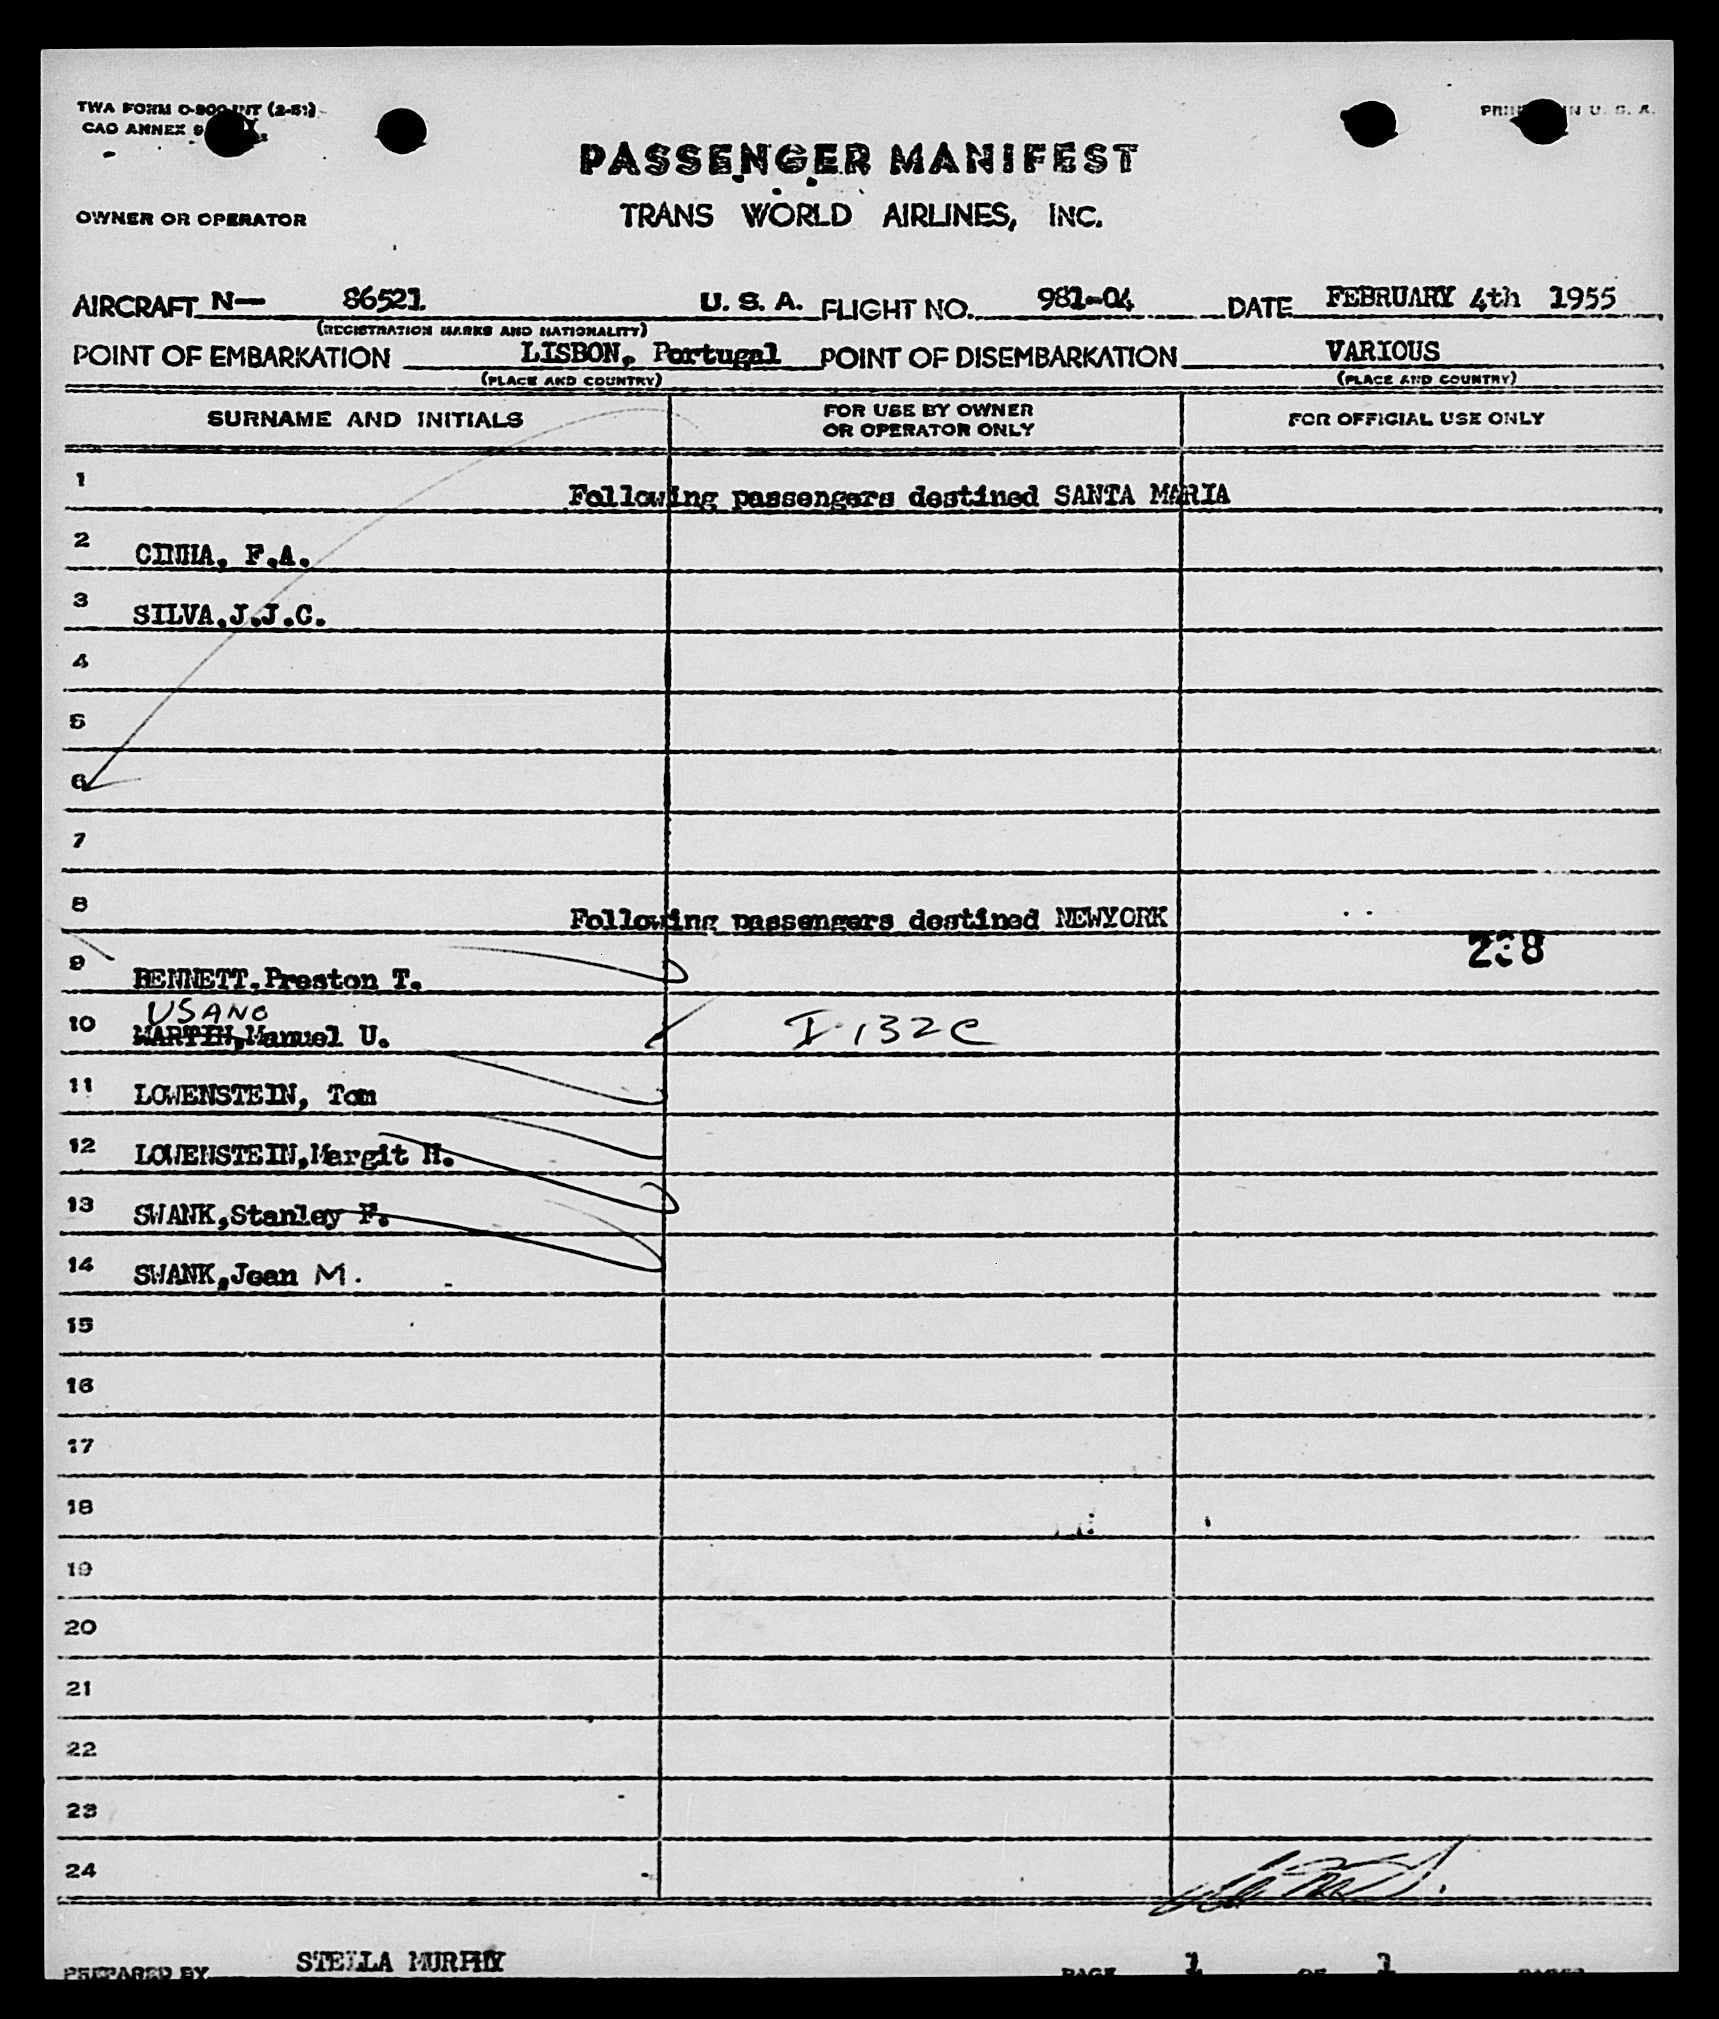 TWA FORM O-900-INT (2-51)
CAO ANNEX 9
PRINTED IN U. S. A.
PASSENGER MANIFEST
OWNER OR OPERATOR
TRANS WORLD AIRLINES, INC.
AIRCRAFT N— 86521 U. S. A. FLIGHT NO. 981-04 DATE FEBRUARY 4th 1955
(REGISTRATION MARKS AND NATIONALITY)
POINT OF EMBARKATION LISBON, Portugal POINT OF DISEMBARKATION VARIOUS
(PLACE AND COUNTRY) (PLACE AND COUNTRY)
SURNAME AND INITIALS FOR USE BY OWNER OR OPERATOR ONLY FOR OFFICIAL USE ONLY
1 Following passengers destined SANTA MARIA
2 CINHA, F.A.
3 SILVA,J.J.C.
4
5
6
7
8 Following passengers destined NEWYORK
238
9 BENNETT,Preston T.
USANO
10 MARTIN,Manuel U. I-132C
11 LOWENSTEIN, Tom
12 LOWENSTEIN,Margit H.
13 SWANK,Stanley F.
14 SWANK,Jean M.
15
16
17
18
19
20
21
22
23
24
PREPARED BY STELLA MURPHY PAGE 1 OF 1 PAGES